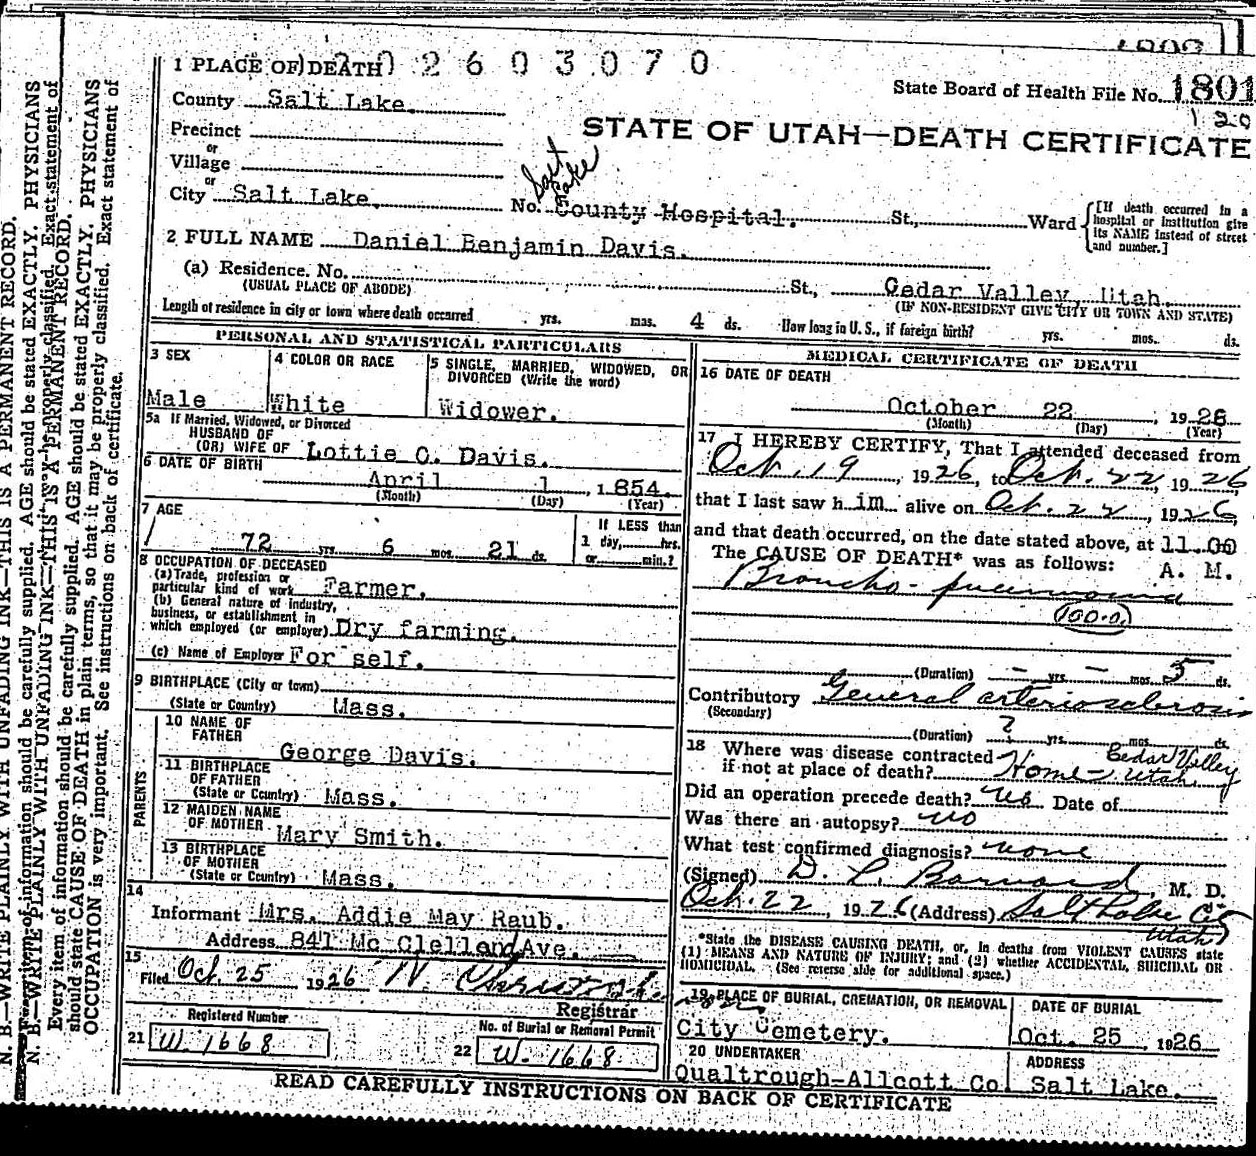 1202603070
1 PLACE OF DEATH
State Board of Health File No. 1801
120
County Salt Lake.
STATE OF UTAH—DEATH CERTIFICATE
Precinct
or
Village
or
City Salt Lake.
Salt Lake
No. County Hospital. St., Ward
[If death occurred in a hospital or institution give its NAME instead of street and number.]
2 FULL NAME Daniel Benjamin Davis.
(a) Residence. No. St., Cedar Valley, Utah.
(USUAL PLACE OF ABODE) (IF NON-RESIDENT GIVE CITY OR TOWN AND STATE)
Length of residence in city or town where death occurred yrs. mos. 4 ds. How long in U. S., if foreign birth? yrs. mos. ds.
PERSONAL AND STATISTICAL PARTICULARS
3 SEX
Male
4 COLOR OR RACE
White
5 SINGLE, MARRIED, WIDOWED, OR
DIVORCED (Write the word)
Widower.
5a If Married, Widowed, or Divorced
HUSBAND OF
(OR) WIFE OF Lottie C. Davis.
6 DATE OF BIRTH
April 1, 1854.
(Month) (Day) (Year)
7 AGE
72 yrs. 6 mos. 21 ds.
If LESS than
1 day, hrs.
or min.?
8 OCCUPATION OF DECEASED
(a) Trade, profession or
particular kind of work Farmer.
(b) General nature of industry,
business, or establishment in
which employed (or employer) Dry farming.
(c) Name of Employer For self.
9 BIRTHPLACE (City or town)
(State or Country) Mass.
PARENTS
10 NAME OF
FATHER
George Davis.
11 BIRTHPLACE
OF FATHER
(State or Country) Mass.
12 MAIDEN NAME
OF MOTHER Mary Smith.
13 BIRTHPLACE
OF MOTHER
(State or Country) Mass.
14
Informant Mrs. Addie May Raub.
Address 841 Mc Clellend Ave.
15
Filed Oct. 25 1926
Registrar
Registered Number
21 W. 1668
No. of Burial or Removal Permit
22 W. 1668
MEDICAL CERTIFICATE OF DEATH
16 DATE OF DEATH
October 22, 1926
(Month) (Day) (Year)
17 I HEREBY CERTIFY, That I attended deceased from
Oct. 19, 1926, to Oct. 22, 1926
that I last saw him alive on Oct. 22, 1926,
and that death occurred, on the date stated above, at 11.00
The CAUSE OF DEATH* was as follows: A. M.
Broncho-pneumonia
(Duration) – yrs. – mos. 5 ds.
Contributory General arteriosclerosis
(Secondary)
(Duration) ? yrs. mos. ds.
18 Where was disease contracted
if not at place of death? Home - Cedar Valley Utah
Did an operation precede death? no Date of
Was there an autopsy? no
What test confirmed diagnosis? none
(Signed) D. L. Barnard, M. D.
Oct. 22, 1926 (Address) Salt Lake City
Utah
*State the DISEASE CAUSING DEATH, or, in deaths from VIOLENT CAUSES state
(1) MEANS AND NATURE OF INJURY; and (2) whether ACCIDENTAL, SUICIDAL OR
HOMICIDAL. (See reverse side for additional space.)
19 PLACE OF BURIAL, CREMATION, OR REMOVAL
City Cemetery.
DATE OF BURIAL
Oct. 25, 1926
20 UNDERTAKER
Qualtrough-Allcott Co
ADDRESS
Salt Lake.
READ CAREFULLY INSTRUCTIONS ON BACK OF CERTIFICATE
N. B.—WRITE PLAINLY WITH UNFADING INK—THIS IS A PERMANENT RECORD.
Every item of information should be carefully supplied. AGE should be stated EXACTLY. PHYSICIANS
should state CAUSE OF DEATH in plain terms, so that it may be properly classified. Exact statement of
OCCUPATION is very important. See instructions on back of certificate.